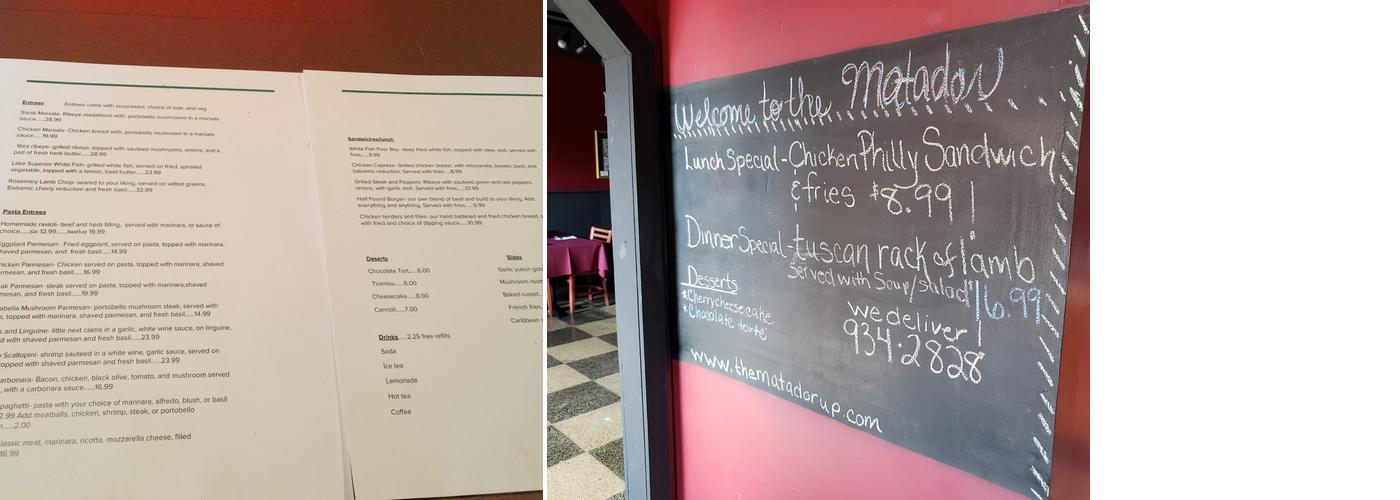 Entrees Entrees come with soup/salad, choice of side, and veg
Steak Marsala- Ribeye medallions with, portobello mushrooms in a marsala
sauce.....28.99
Chicken Marsala- Chicken breast with, portobello mushroom in a marsala
sauce.....19.99
16oz ribeye- grilled ribeye, topped with sauteed mushrooms, onions, and a
pad of fresh herb butter.....28.99
Lake Superior White Fish- grilled white fish, served on fried, spiraled
vegetable, topped with a lemon, basil butter.....23.99
Rosemary Lamb Chop- seared to your liking, served on wilted greens,
Balsamic cherry reduction and fresh basil.....32.99
Pasta Entrees
Homemade ravioli- beef and herb filling, served with marinara, or sauce of
choice.....six 12.99......twelve 19.99
ggplant Parmesan- Fried eggplant, served on pasta, topped with marinara,
haved parmesan, and fresh basil.....14.99
icken Parmesan- Chicken served on pasta, topped with marinara, shaved
rmesan, and fresh basil.....16.99
ak Parmesan- steak served on pasta, topped with marinara,shaved
mesan, and fresh basil.....19.99
abella Mushroom Parmesan- portobello mushroom steak, served with
topped with marinara, shaved parmesan, and fresh basil.....14.99
s and Linguine- little next clams in a garlic, white wine sauce, on linguine,
d with shaved parmesan and fresh basil.....23.99
Scallopini- shrimp sauteed in a white wine, garlic sauce, served on
topped with shaved parmesan and fresh basil.....23.99
arbonara- Bacon, chicken, black olive, tomato, and mushroom served
, with a carbonara sauce.....16.99
paghetti- pasta with your choice of marinara, alfredo, blush, or basil
2.99 Add meatballs, chicken, shrimp, steak, or portobello
.....2.00
lassic meat, marinara, ricotta, mozzarella cheese, filled
16.99
Sandwiches/lunch
White Fish Poor Boy- deep fried white fish, topped with slaw, aioli, served with
fries.....9.99
Chicken Caprese- Grilled chicken breast, with mozzarella, tomato, basil, and
balsamic reduction. Served with fries.....8.99
Grilled Steak and Peppers- Ribeye with sauteed green and red peppers,
onions, with garlic aioli. Served with fries.....12.99
Half Pound Burger- our own blend of beef and build to your liking. Add
everything and anything. Served with fries.....9.99
Chicken tenders and fries- our hand battered and fried chicken breast, s
with fried and choice of dipping sauce.....10.99
Deserts
Chocolate Tort.....6.00
Tiramisu.....6.00
Cheesecake.....8.00
Cannoli.....7.00
Sides
Garlic yukon gold
Mushroom risott
Baked russet...
French fries..
Caribbean
Drinks.....2.25 free refills
Soda
Ice tea
Lemonade
Hot tea
Coffee
Welcome to the Matador
Lunch Special - Chicken Philly Sandwich
& fries $8.99!
Dinner Special - tuscan rack of lamb
Served with Soup/salad 16.99
Desserts
*Cherry cheesecake
*Chocolate torte
we deliver!
934-2828
www.thematadorup.com